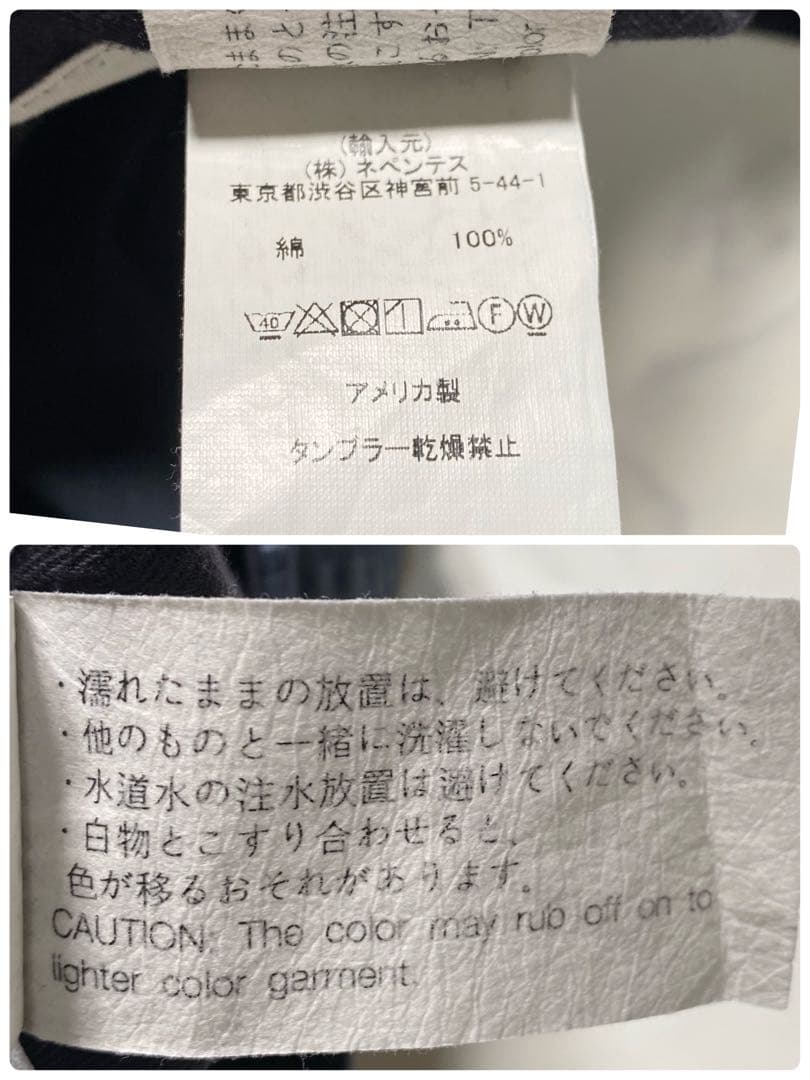 (輸入元)
(株)ネペンテス
東京都渋谷区神宮前 5-44-1
綿 100%
40 F W
アメリカ製
タンブラー乾燥禁止
・濡れたままの放置は、避けてください。
・他のものと一緒に洗濯しないでください。
・水道水の注水放置は避けてください。
・白物とこすり合わせると、
色が移るおそれがあります。
CAUTION: The color may rub off on to
lighter color garment.